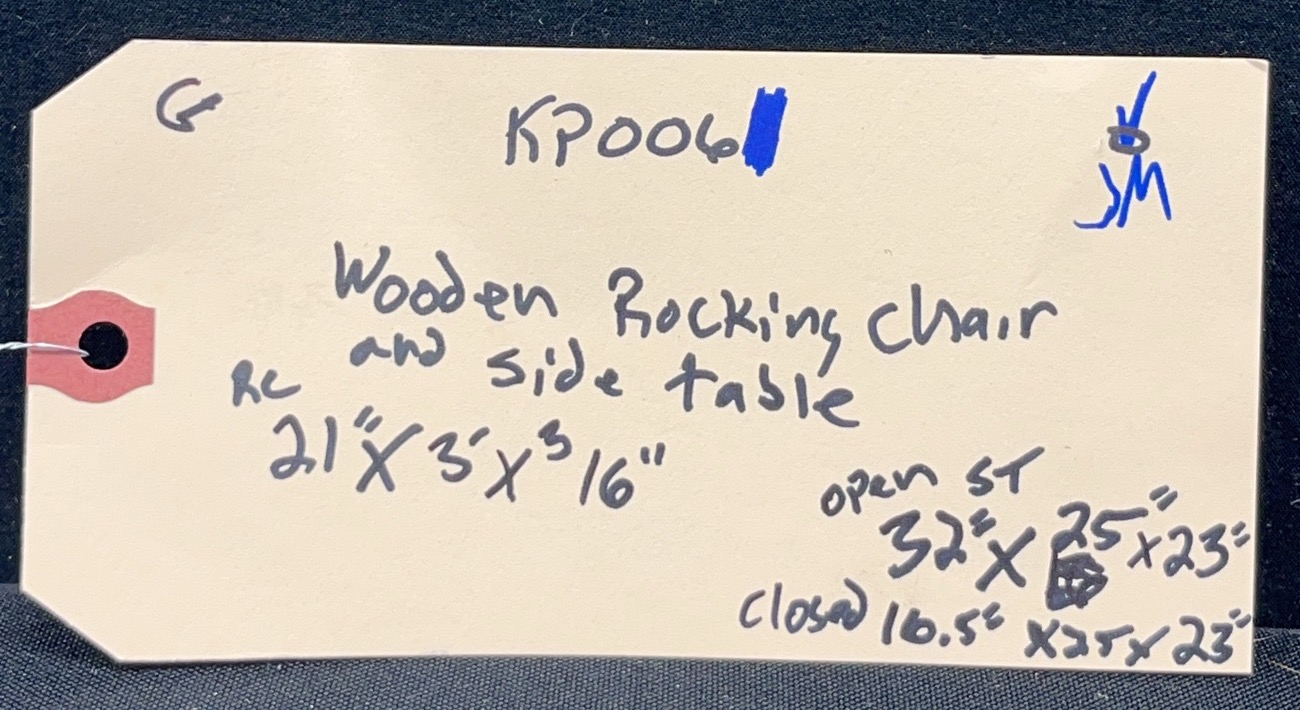 G
KP006
JM
Wooden Rocking chair
and side table
RC
21" X 3' X 3 16"
open ST
32" X 25" x 23"
Closed 16.5" x 25 x 23"